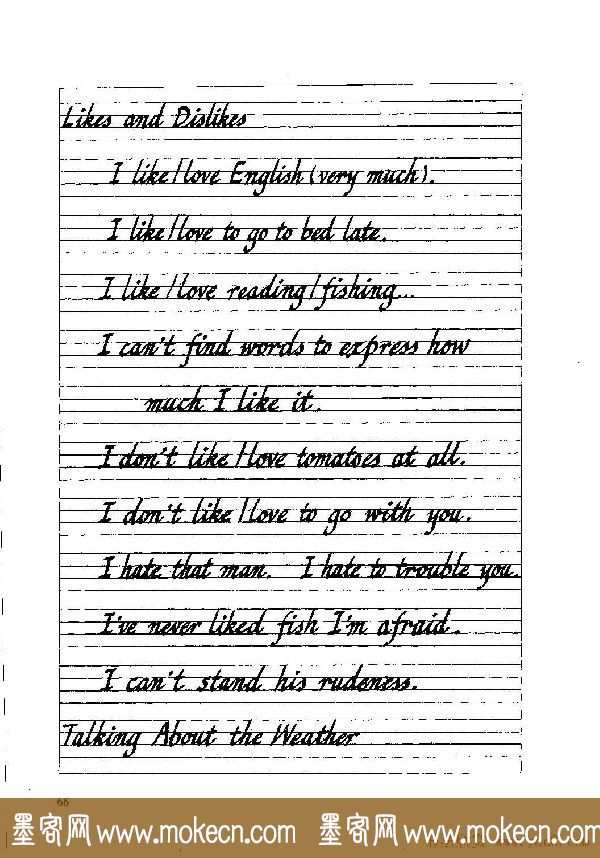 Likes and Dislikes
I like/love English (very much).
I like/love to go to bed late.
I like/love reading/fishing...
I can't find words to express how
much I like it.
I don't like/love tomatoes at all.
I don't like/love to go with you.
I hate that man. I hate to trouble you.
I've never liked fish I'm afraid.
I can't stand his rudeness.
Talking About the Weather
66
墨客网 www.mokecn.com 墨客网 www.mokecn.com